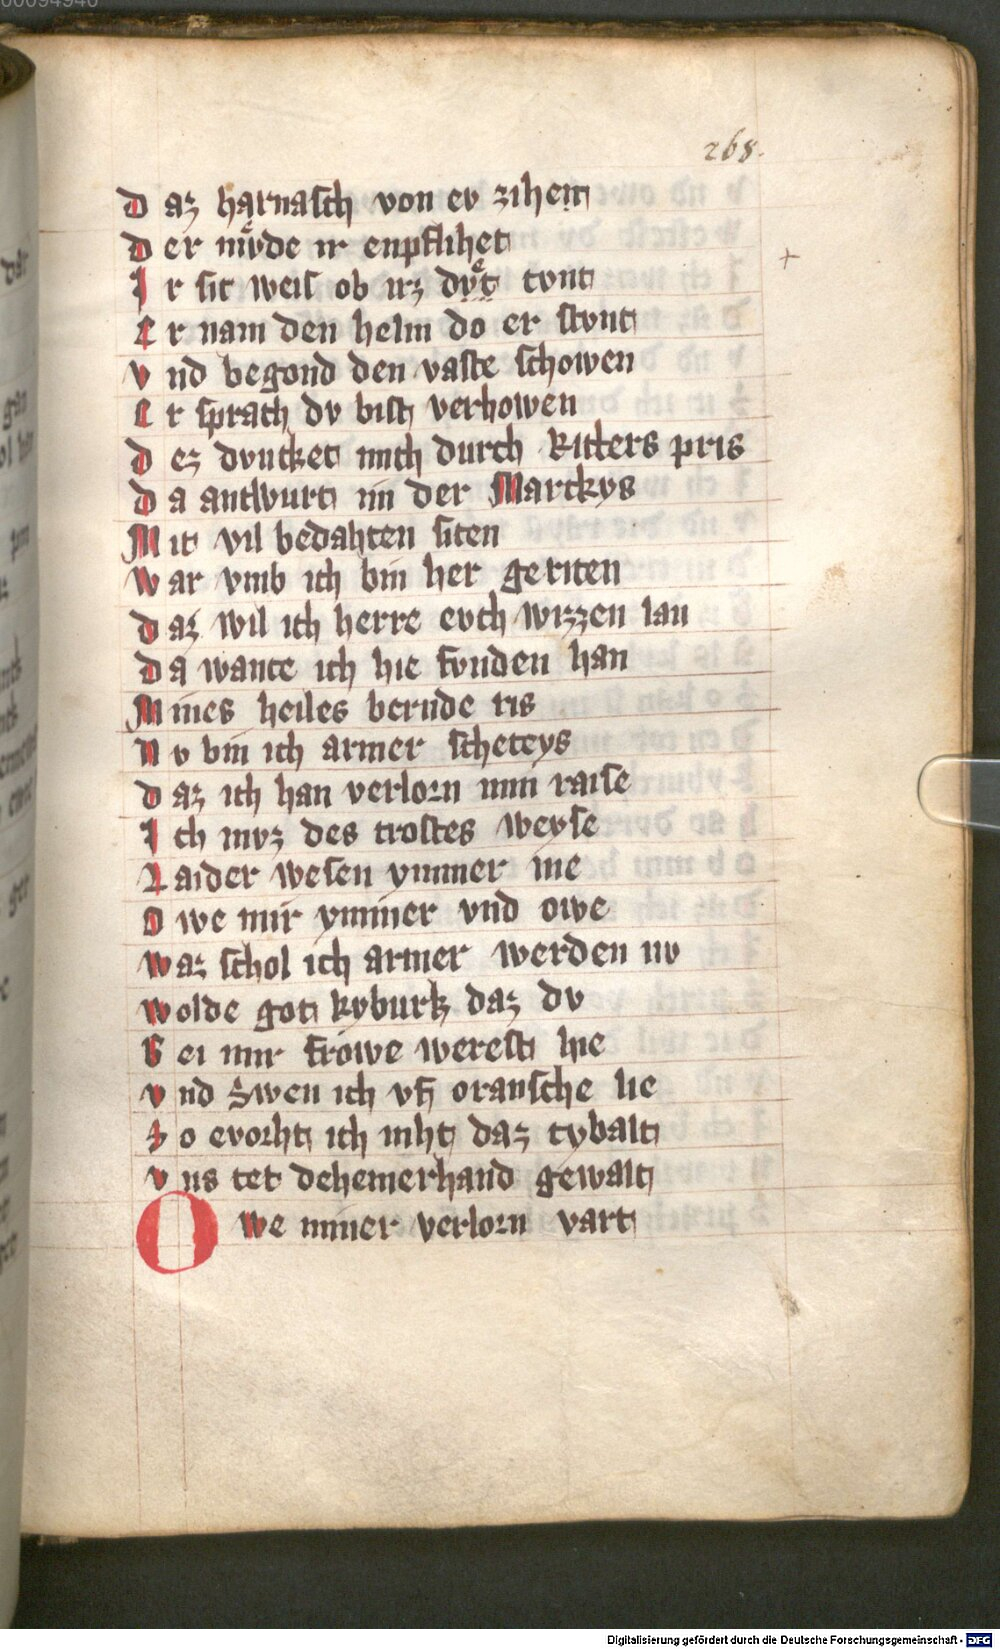 268.
D az harnasch von ev zihent
D er mvͤde ir enpflihet
I r sit weis ob irz dvͤt tvnt
E r nam den helm do er stvnt
V nd begond den vaste schowen
E r sprach dv bist verhowen
D ez dvncket mich durch Ritters pris
D a antwurt im der Marckys
M it vil bedahten siten
W ar vmb ich bin her geriten
D az wil ich herre evch wizzen lan
D a wante ich hie fvnden han
M ines heiles bernde ris
N v bin ich armer scheteys
D az ich han verlorn min raise
I ch mvz des trostes weyse
L aider wesen ymmer me
O we mir ymmer vnd owe
W az schol ich armer werden nv
W olde got kyburk daz dv
B ei mir frowe werest hie
V nd swen ich vf oransche lie
S o evorht ich niht daz tybalt
V ns tet deheinerhand gewalt
O we miner verlorn vart
Digitalisierung gefördert durch die Deutsche Forschungsgemeinschaft - DFG